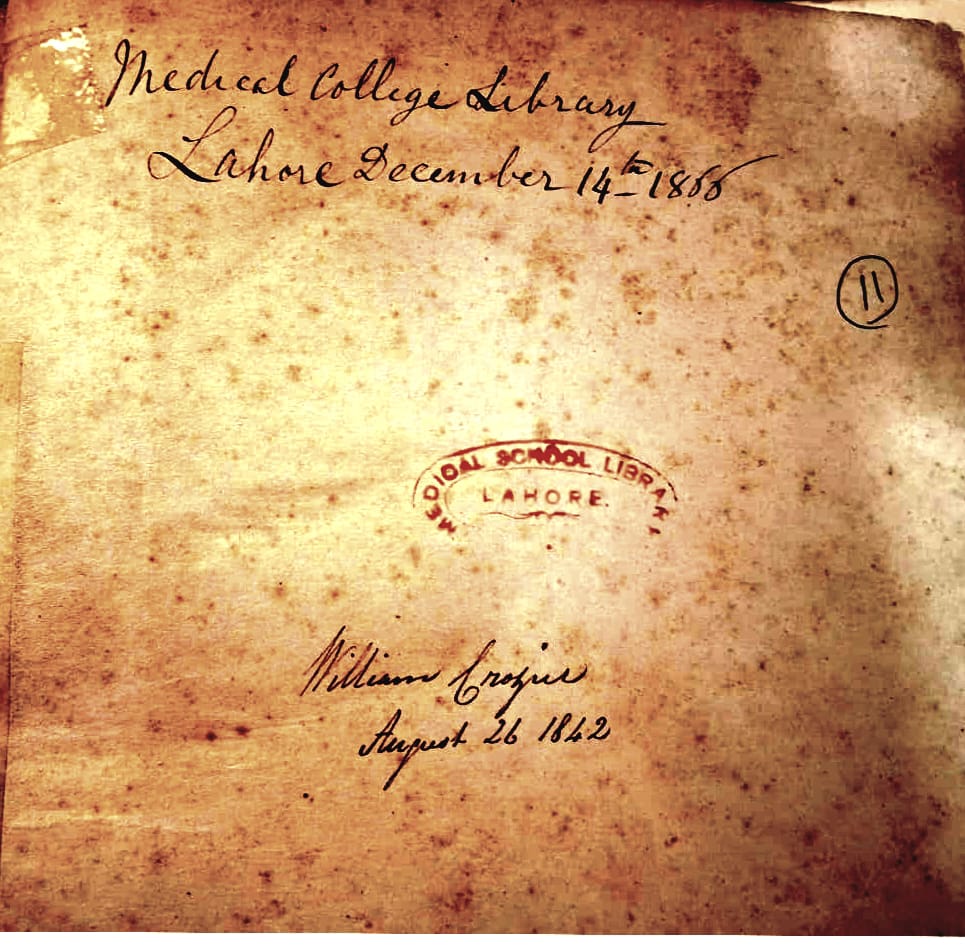 Medical College Library
Lahore December 14th 1866
11
MEDICAL SCHOOL LIBRARY
LAHORE.
William Crozier
August 26 1842